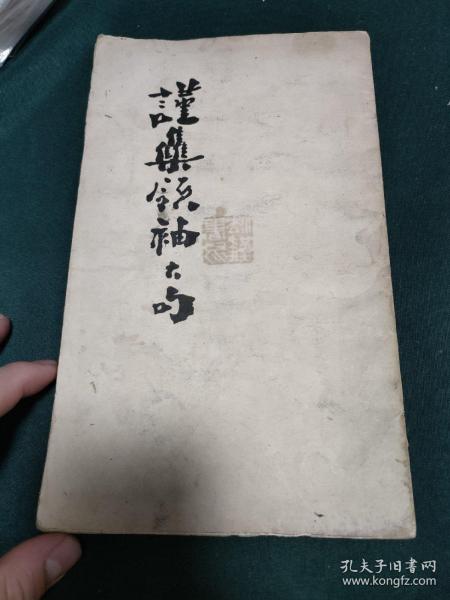 謹集領袖大句
孔夫子旧书网
www.kongfz.com